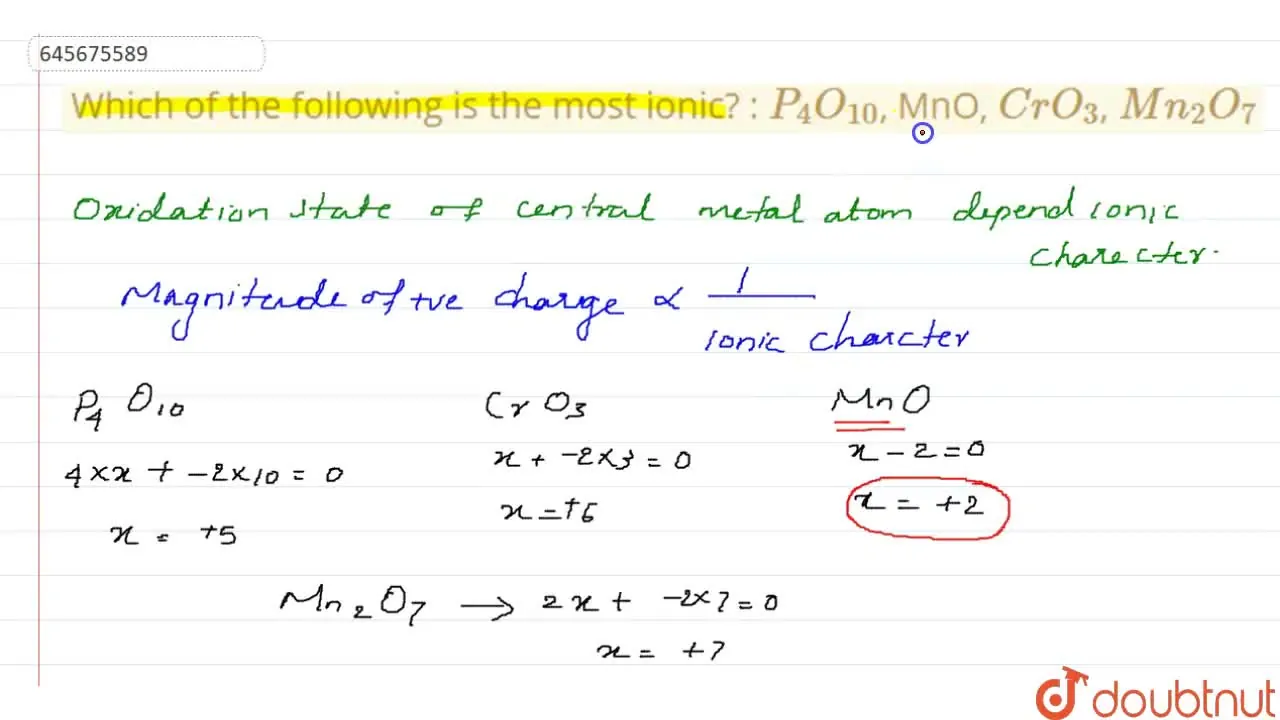 645675589
Which of the following is the most ionic? : P₄O₁₀, MnO, CrO₃, Mn₂O₇
Oxidation state of central metal atom depend ionic
charecter.
Magnitude of +ve charge ∝ 1
ionic charcter
P₄ O₁₀
4×x + -2×10 = 0
x = +5
Cr O₃
x + -2×3 = 0
x = +6
MnO
x - 2 = 0
x = +2
Mn₂O₇ → 2x + -2×7 = 0
x = +7
doubtnut